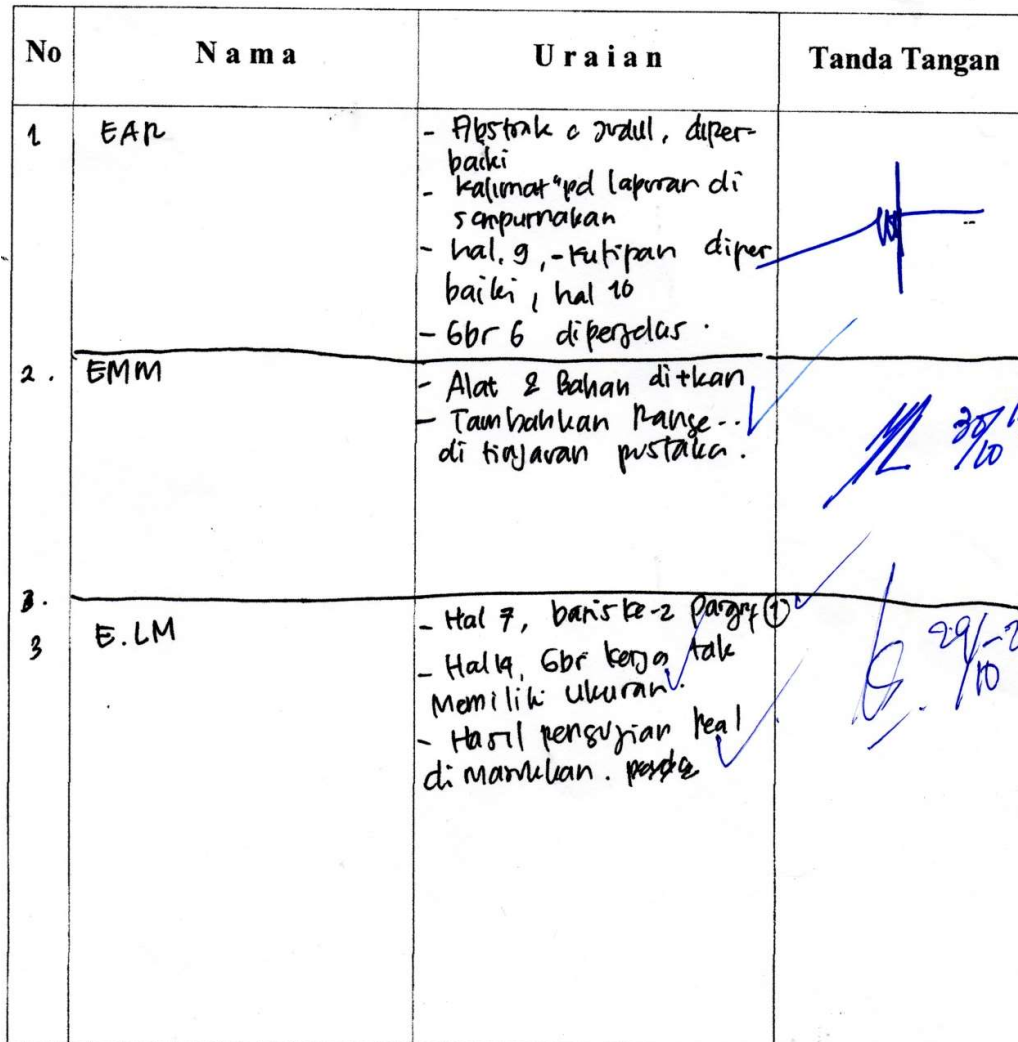 No Nama Uraian Tanda Tangan
1 EAR - Abstrak & judul, diper-
baiki
- kalimat" pd laporan di
sempurnakan
- hal. 9, - kutipan diper
baiki, hal 10
- Gbr 6 diperjelas.
2. EMM - Alat & Bahan di+kan
- Tambahkan Range..
di tinjauan pustaka.
30/10
3.
3 E.LM - Hal 7, baris ke-2 pargrf ①
- Hal 14, Gbr kerja tak
Memiliki Ukuran.
- Hasil pengujian real
di masukkan.
29/10